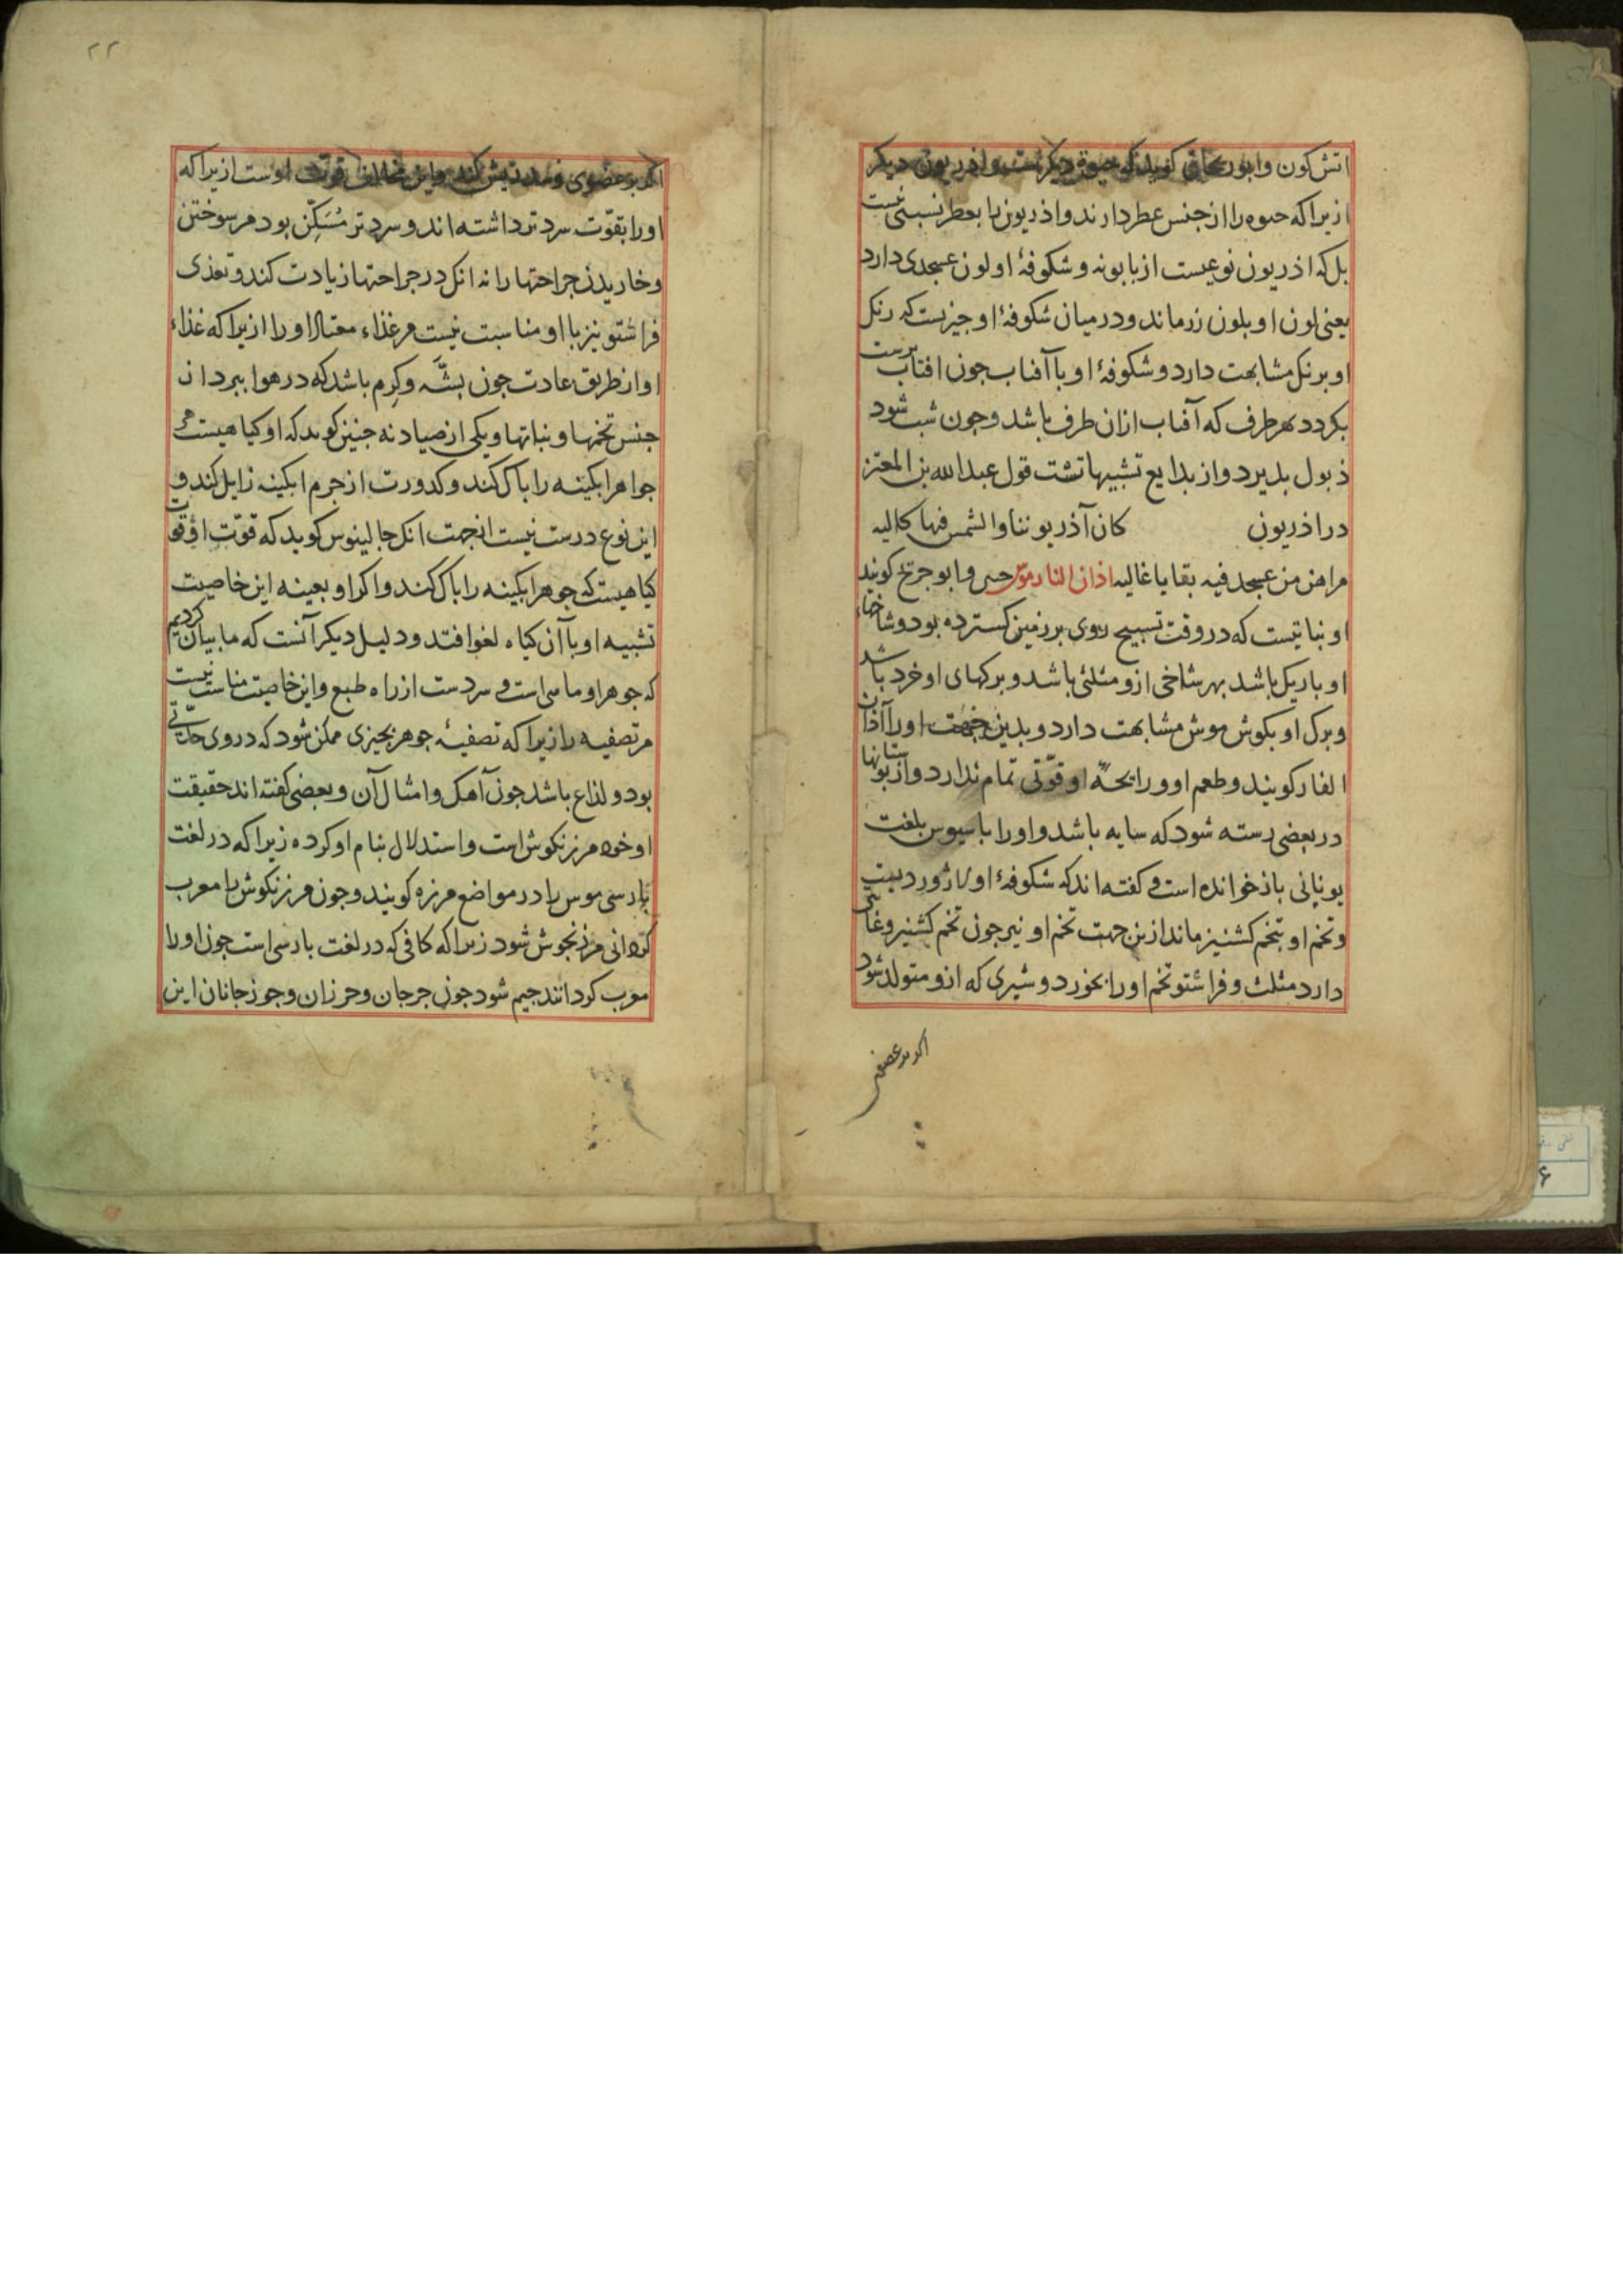 اتش کون وابوریحان کوید که حنوه دیکرست واذریون دیکر
ازیرا که حنوه را از جنس عطر دارند واذریون را بعطر نسبتی نیست
بل که اذریون نوعیست از بابونه وشکوفهٔ او لون عسجدی دارد
یعنی لون او بلون زر ماند ودر میان شکوفهٔ او چیزیست که رنک
او برنک مشابهت دارد وشکوفهٔ او با آفتاب جون افتاب پرست
بکردد بهر طرف که آفتاب ازان طرف باشد وجون شب شود
ذبول بذیرد واز بدایع تشبیهات قول عبدالله بن المعتز
در اذریون کان آذریوننا والشمس فیها کالیه
مداهن من عسجد فیه بقایا غالیه اذان الفار
او نباتیست که در وقت تسبیح روی بر زمین کسترده بود وشاخهاء
او باریک باشد بهر شاخی ازو مثلثی باشد وبرکهای او خرد باشد
وبرک او بکوش موش مشابهت دارد وبدین جهت او را آذان
الفار کویند وطعم او ورایحهٔ او قوّتی تمام ندارد واز بوستانها
در بعضی رسته شود که سایه باشد واو را بلغت
یونانی باز خوانده است و کفته اند که شکوفهٔ او لاژوردیست
وتخم او بتخم کشنیز ماند ازین جهت تخم او نیز جون تخم کشنیز
دارد مثلث وفراشتو تخم او را بخورد وشیری که ازو متولد شود
اکر بر عضوی
۲۲
اکر بر عضوی رسد ریش کند واین مخالف قوّت اوست ازیرا که
او را بقوّت سرد تر داشته اند وسرد تر مُسَکِّن بود مر سوختن
وخاریدن جراحتها را نه انک در جراحتها زیادت کند وتغذی
فراشتو نیز با او مناسبت نیست مر غذاء معتاد او را ازیرا که غذاء
او از طریق عادت جون بشّه وکرم باشد که در هوا ببرد از
جنس تخمها ونباتها ویکی از صیادنه جنین کوید که او کیاهیست که
جواهر ابکینه را باک کند وکدورت از جرم ابکینه زایل کند و
این نوع درست نیست ازجهت انک جالینوس کوید که قوّت او قوّت
کیاهیست که جوهر ابکینه را باک کند واکر او بعینه این خاصیت
تشبیه او با آن کیاه لغو افتد ودلیل دیکر آنست که ما بیان کردیم
که جوهر او مایی است و سردست از راه طبع واین خاصیت مناسب نیست
مر تصفیه را زیرا که تصفیهٔ جوهر بجیزی ممکن شود که در وی حدّتی
بود ولذاع باشد جون آهک وامثال آن وبعضی کفته اند حقیقت
او خود مرزنکوش است واستدلال بنام او کرده زیرا که در لغت
بارسی موش را در مواضع مرزه کویند وجون مرزنکوش را معرب
کردانی مرزنجوش شود زیرا که کافی که در لغت بارسی است جون او را
معرب کردانند جیم شود جون جرجان وجوزجانان این